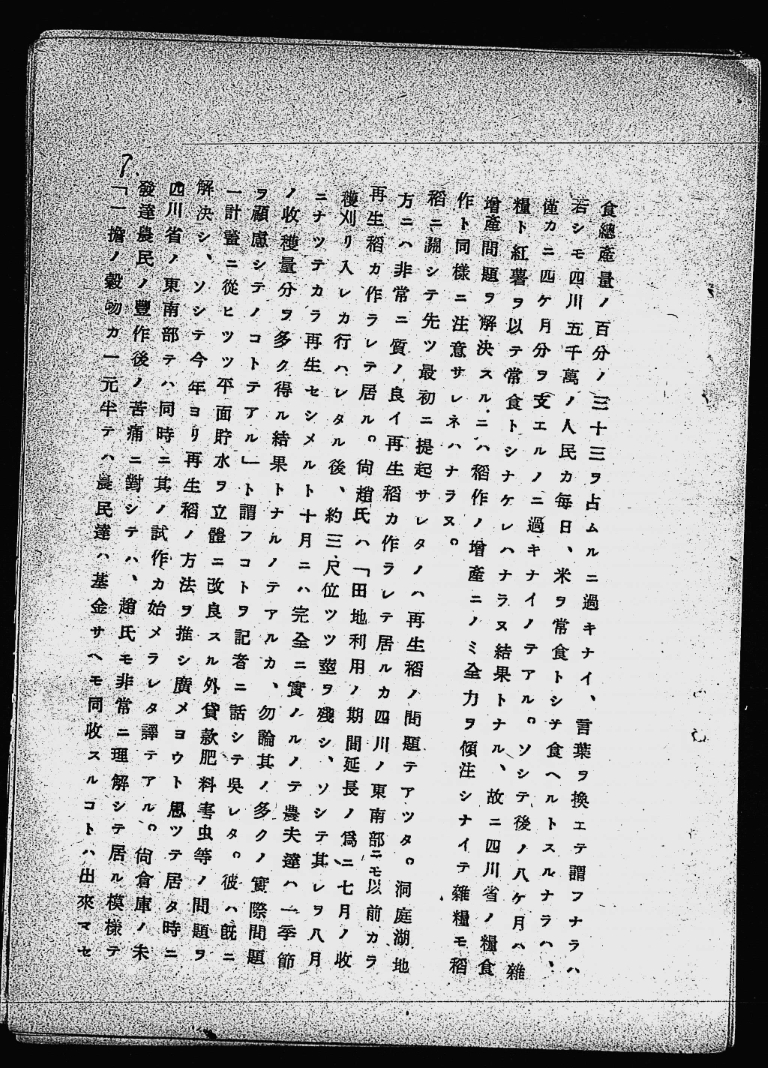 食總產量ノ百分ノ三十三ヲ占ムルニ過キナイ、言葉ヲ換エテ謂フナラハ
若シモ四川五千萬ノ人民カ每日、米ヲ常食トシテ食ヘルトスルナラハ、
僅カニ四ケ月分ヲ支エルノニ過キナイノテアル。ソシテ後ノ八ケ月ハ雜
糧ト紅薯ヲ以テ常食トシナケレハナラヌ結果トナル、故ニ四川省ノ糧食
增產問題ヲ解決スルニハ稻作ノ增產ニノミ全力ヲ傾注シナイテ雜糧モ稻
作ト同樣ニ注意サレネハナラヌ。
稻ニ關シテ先ツ最初ニ提起サレタノハ再生稻ノ問題テアツタ。洞庭湖地
方ニハ非常ニ質ノ良イ再生稻カ作ラレテ居ルカ四川ノ東南部ニモ以前カラ
再生稻カ作ラレテ居ル。尙趙氏ハ「田地利用ノ期間延長ノ爲ニ七月ノ收
穫刈リ入レカ行ハレタル後、約三尺位ツツ莖ヲ殘シ、ソシテ其レヲ八月
ニナツテカラ再生セシメルト十月ニハ完全ニ實ノルノテ農夫達ハ一季節
ノ收穫量分ヲ多ク得ル結果トナルノテアルカ、勿論其ノ多クノ實際問題
ヲ顧慮シテノコトテアル」ト謂フコトヲ記者ニ話シテ吳レタ。彼ハ旣ニ
一計畫ニ從ヒツツ平面貯水ヲ立體ニ改良スル外貸款肥料害虫等ノ問題ヲ
解決シ、ソシテ今年ヨリ再生稻ノ方法ヲ推シ廣メヨウト思ツテ居タ時ニ
四川省ノ東南部テハ同時ニ其ノ試作カ始メラレタ譯テアル。尙倉庫ノ未
發達農民ノ豐作後ノ苦痛ニ對シテハ、趙氏モ非常ニ理解シテ居ル模樣テ
「一擔ノ穀物カ一元半テハ農民達ハ基金サヘモ同收スルコトハ出來マセ
7.